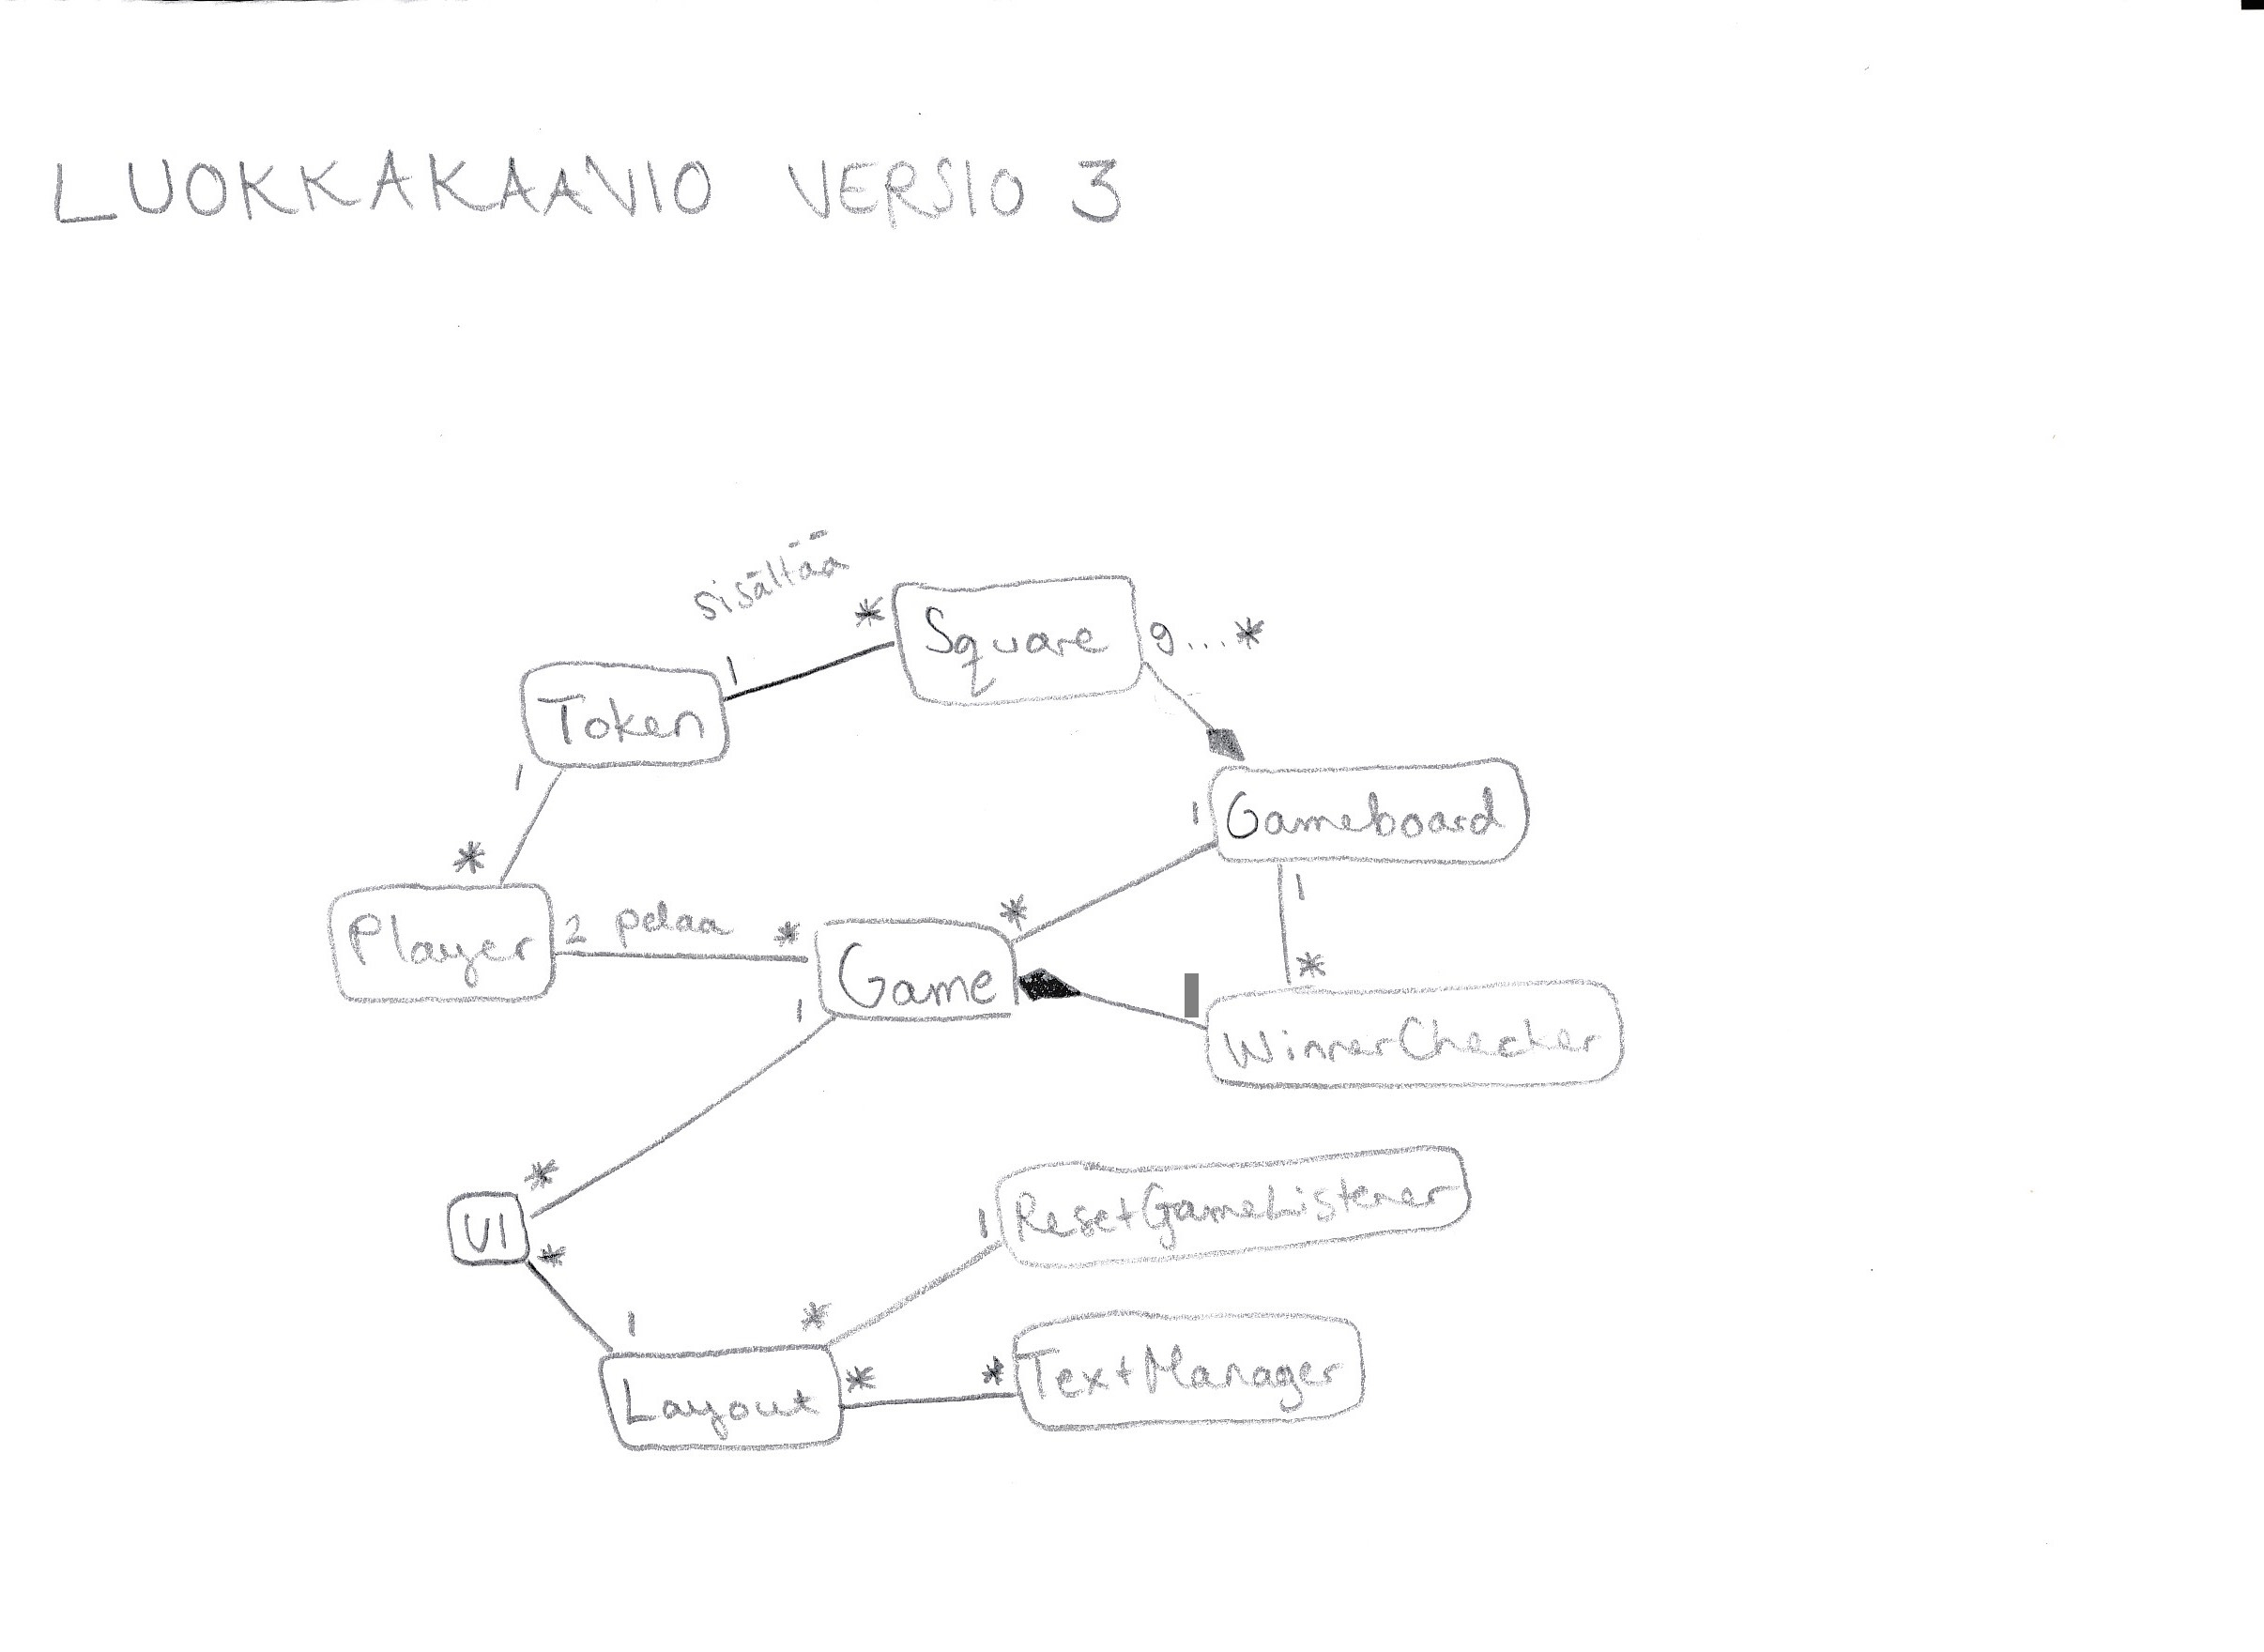 LUOKKAKAAVIO VERSIO 3
sisältää
*
Square
9...*
1
Token
1
*
1
Gameboard
1
*
Player
2 pelaa *
Game
1
*
1
WinnerChecker
*
UI
*
1
1
ResetGameListener
*
Layout
*
*
TextManager